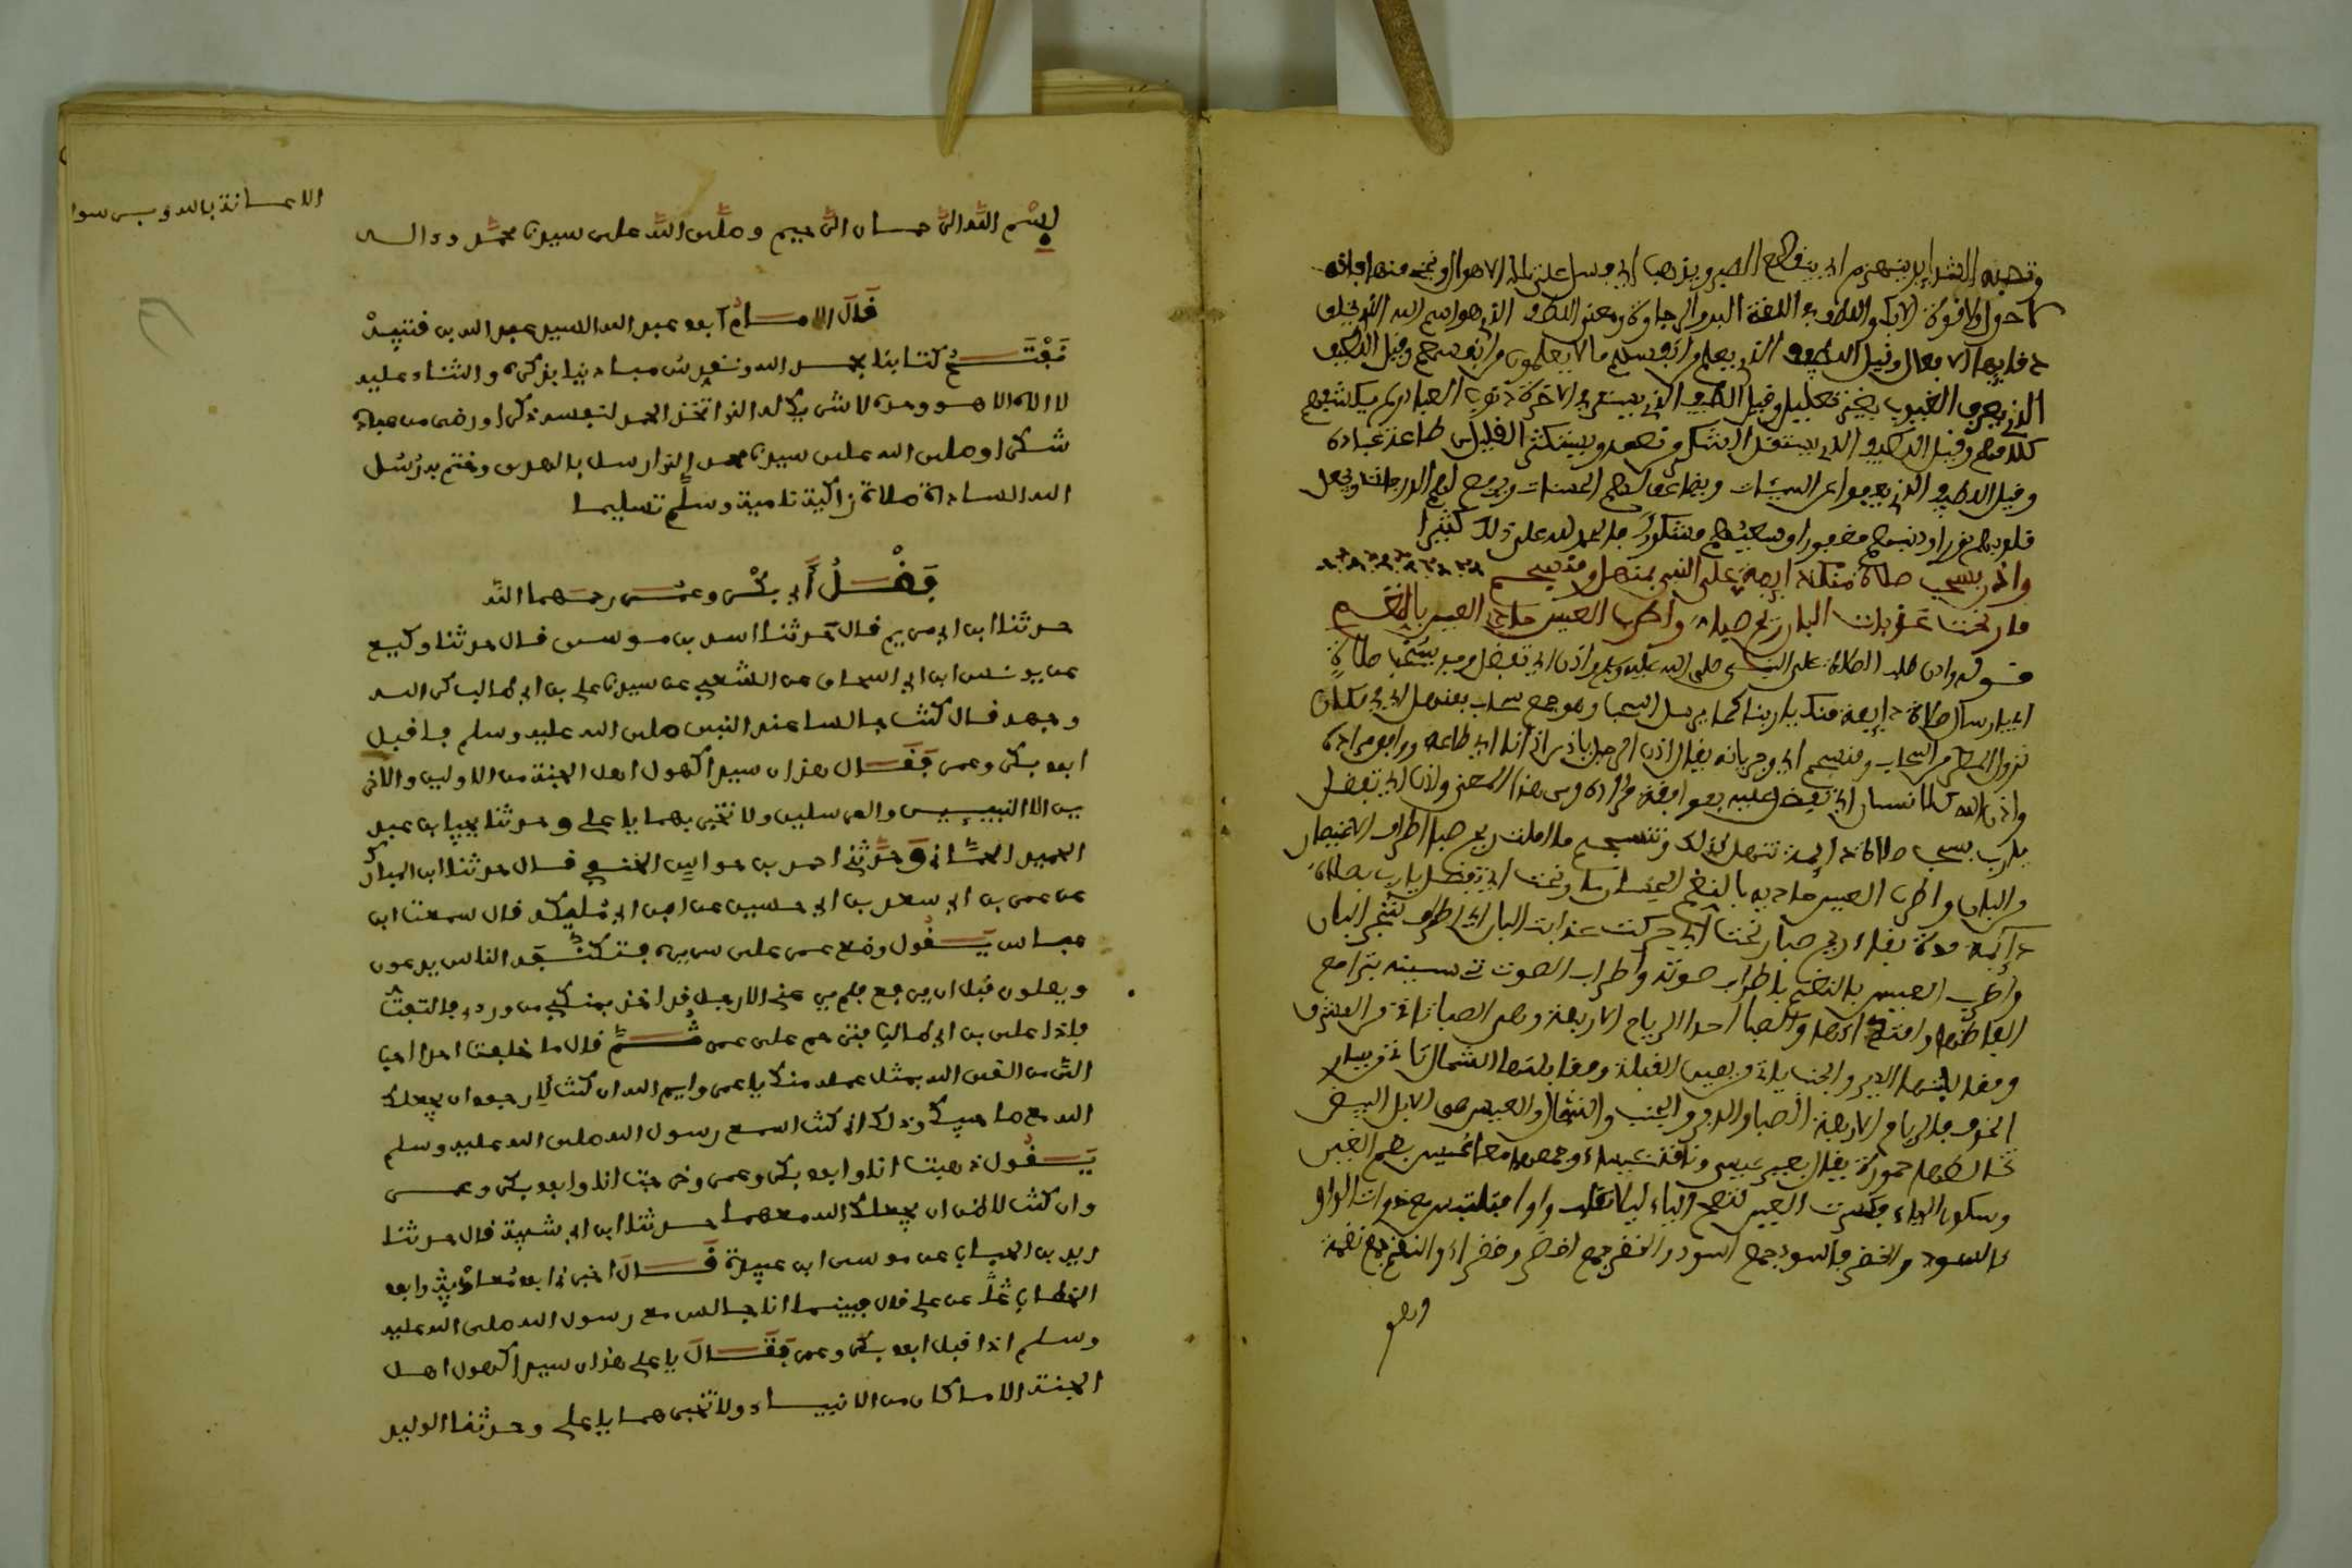 وتصبه الشدايد ينهزم اي ينقطع الصبر ويذهب اي وسل على تلك الاهوال ونجنا منها فانه
لا حول ولا قوة الا بك واللطف في اللغة البر والرجاوة ومعنى اللطف الذي هو اسم الله الذي يخلف
دقايق الافعال وقيل اللطيف الذي يعلم قرايبهم ما لا يعلمون من انفسهم وقيل اللطيف
الذي يعرف الغيوب بغير تعليل وقيل اللطيف الذي يستر في الاخرة ذنوب العباد ولم يكشفهم
كلا منهم وقيل اللطيف الذي يستقل ونعمه ويستكثر القليل من طاعة عباده
وقيل اللطيف الذي يعفوا عن السيئات ويضاعف لهم الحسنات ويرفع لهم الدرجات ويجعل
قلوبهم نورا وذنبهم مغفورا وسعيهم مشكورا فالحمد لله على ذلك كثيرا
واذن بسحب صلاة منك دايمة على النبي بمنهل ومنسجم
ما رنحت عذبات البان ريح صبا واطرب العيس حادي العيس بالنغم
قوله واذن طلب الصلاة على النبي صلى الله عليه وسلم واذن اي تفضل بسحب صلاة
اي بارسال صلاة دايمة منك يا ربنا كما يرسل السحاب وهو جمع سحاب بمنهل اي في مكان
نزول المطر من السحاب ومنسجم اي وجريانه يقال اذن الرجل ياذن اذا اي طاعه ووافق مراده
واذن الله للانسان اي تفضل عليه بموافقة مراده ومن هذا المعنى واذن اي تفضل
يا رب بسحب صلاة دايمة تنهل لذلك وتنسجم ما املت ريح صبا اطراف الاغصان
والبان واطرب العيس حاديه بالنغم اي تفضل يا رب بصلاة
دايمة مدة بقاء ريح صبا رنحت اي حركت عذبات البان اي اطراف شجر البان
واطرب العيس بالنغم باطراب صوته واطراب الصوت تحسينه بترامح
والصبا احدا الرياح الاربعة وهي الصبا تاتي من المشرق
ومقابلتها الدبر والجنب ياتي من يمين القبلة ومقابلتها الشمال تاتي من يسار
الجوف فالرياح الاربعة الصبا والدبر والجنب والشمال والعيس هي الابل البيض
تخالطها حمورة يقال بعير عيس وناقة عيساء وجمعها معا عيس بضم العين
وسكون الياء فكسرت العين لتصح الياء ليلا تقلب واوا فتلتبس مع ذوات الواو
كالسود والخضر فالسود جمع اسود والخضر جمع اخضر وخضراء والنغم جمع نغمة
وهو
الاعانة بالله وبس سوا
بسم الله الرحمان الرحيم وصلى الله على سيدنا محمد وءاله
قال الامام ابو عبد الله السيد عبد الله بن قتيبة
نفتتح كتابنا بحمد الله ونقدس مبادينا بذكره والثناء عليه
لا اله الا هو وحده لا شريك له الذي اتخذ الحمد لنفسه ذكرا ورضى من عباده
شكرا وصلى الله على سيدنا محمد الذي ارسله بالهدى وختم به رسل
الله السادة صلاة زاكية نامية وسلم تسليما
فضل أبي بكر وعمر رحمهما الله
حدثنا ابن ابي مريم قال حدثنا اسد بن موسى قال حدثنا وكيع
عن يونس ابن ابي اسحاق عن الشعبي عن سيدنا علي بن ابي طالب كرم الله
وجهه قال كنت جالسا عند النبي صلى الله عليه وسلم فاقبل
ابو بكر وعمر فقال هذان سيدا كهول اهل الجنة من الاولين والاخر
ين الا النبيين والمرسلين ولا تخبر بهما يا علي وحدثنا يحيا بن عبد
الحميد الحماني وحدثني احمد بن حواس الحنفي قال حدثنا ابن المبارك
عن عمر بن ابي سعد بن ابي حسين عن ابن ابي مليكة قال سمعت ابن
عباس يقول وضع عمر على سريره فتكنفه الناس يدعون
ويصلون قبل ان يرفع فلم يرعني الا رجل قد اخذ بمنكبي من وراءي فالتفت
فاذا علي بن ابي طالب فترحم على عمر ثم قال ما خلفت احدا احب
الي من القى الله بمثل عمله منك يا عمر وايم الله ان كنت لارجو ان يجعلك
الله مع صاحبيك وذلك اني كنت اسمع رسول الله صلى الله عليه وسلم
يقول ذهبت انا وابو بكر وعمر وخرجت انا وابو بكر وعمر
وان كنت لاظن ان يجعلك الله معهما حدثنا ابن ابي شيبة قال حدثنا
زيد بن الحباب عن موسى ابن عبيدة قال اخبرني ابو معاذ وابو
الخطاب عن علي قال بينما انا جالس مع رسول الله صلى الله عليه
وسلم اذ اقبل ابو بكر وعمر فقال يا علي هذان سيدا كهول اهل
الجنة الا ما كان من الانبياء ولا تخبرهما يا علي وحدثنا الوليد